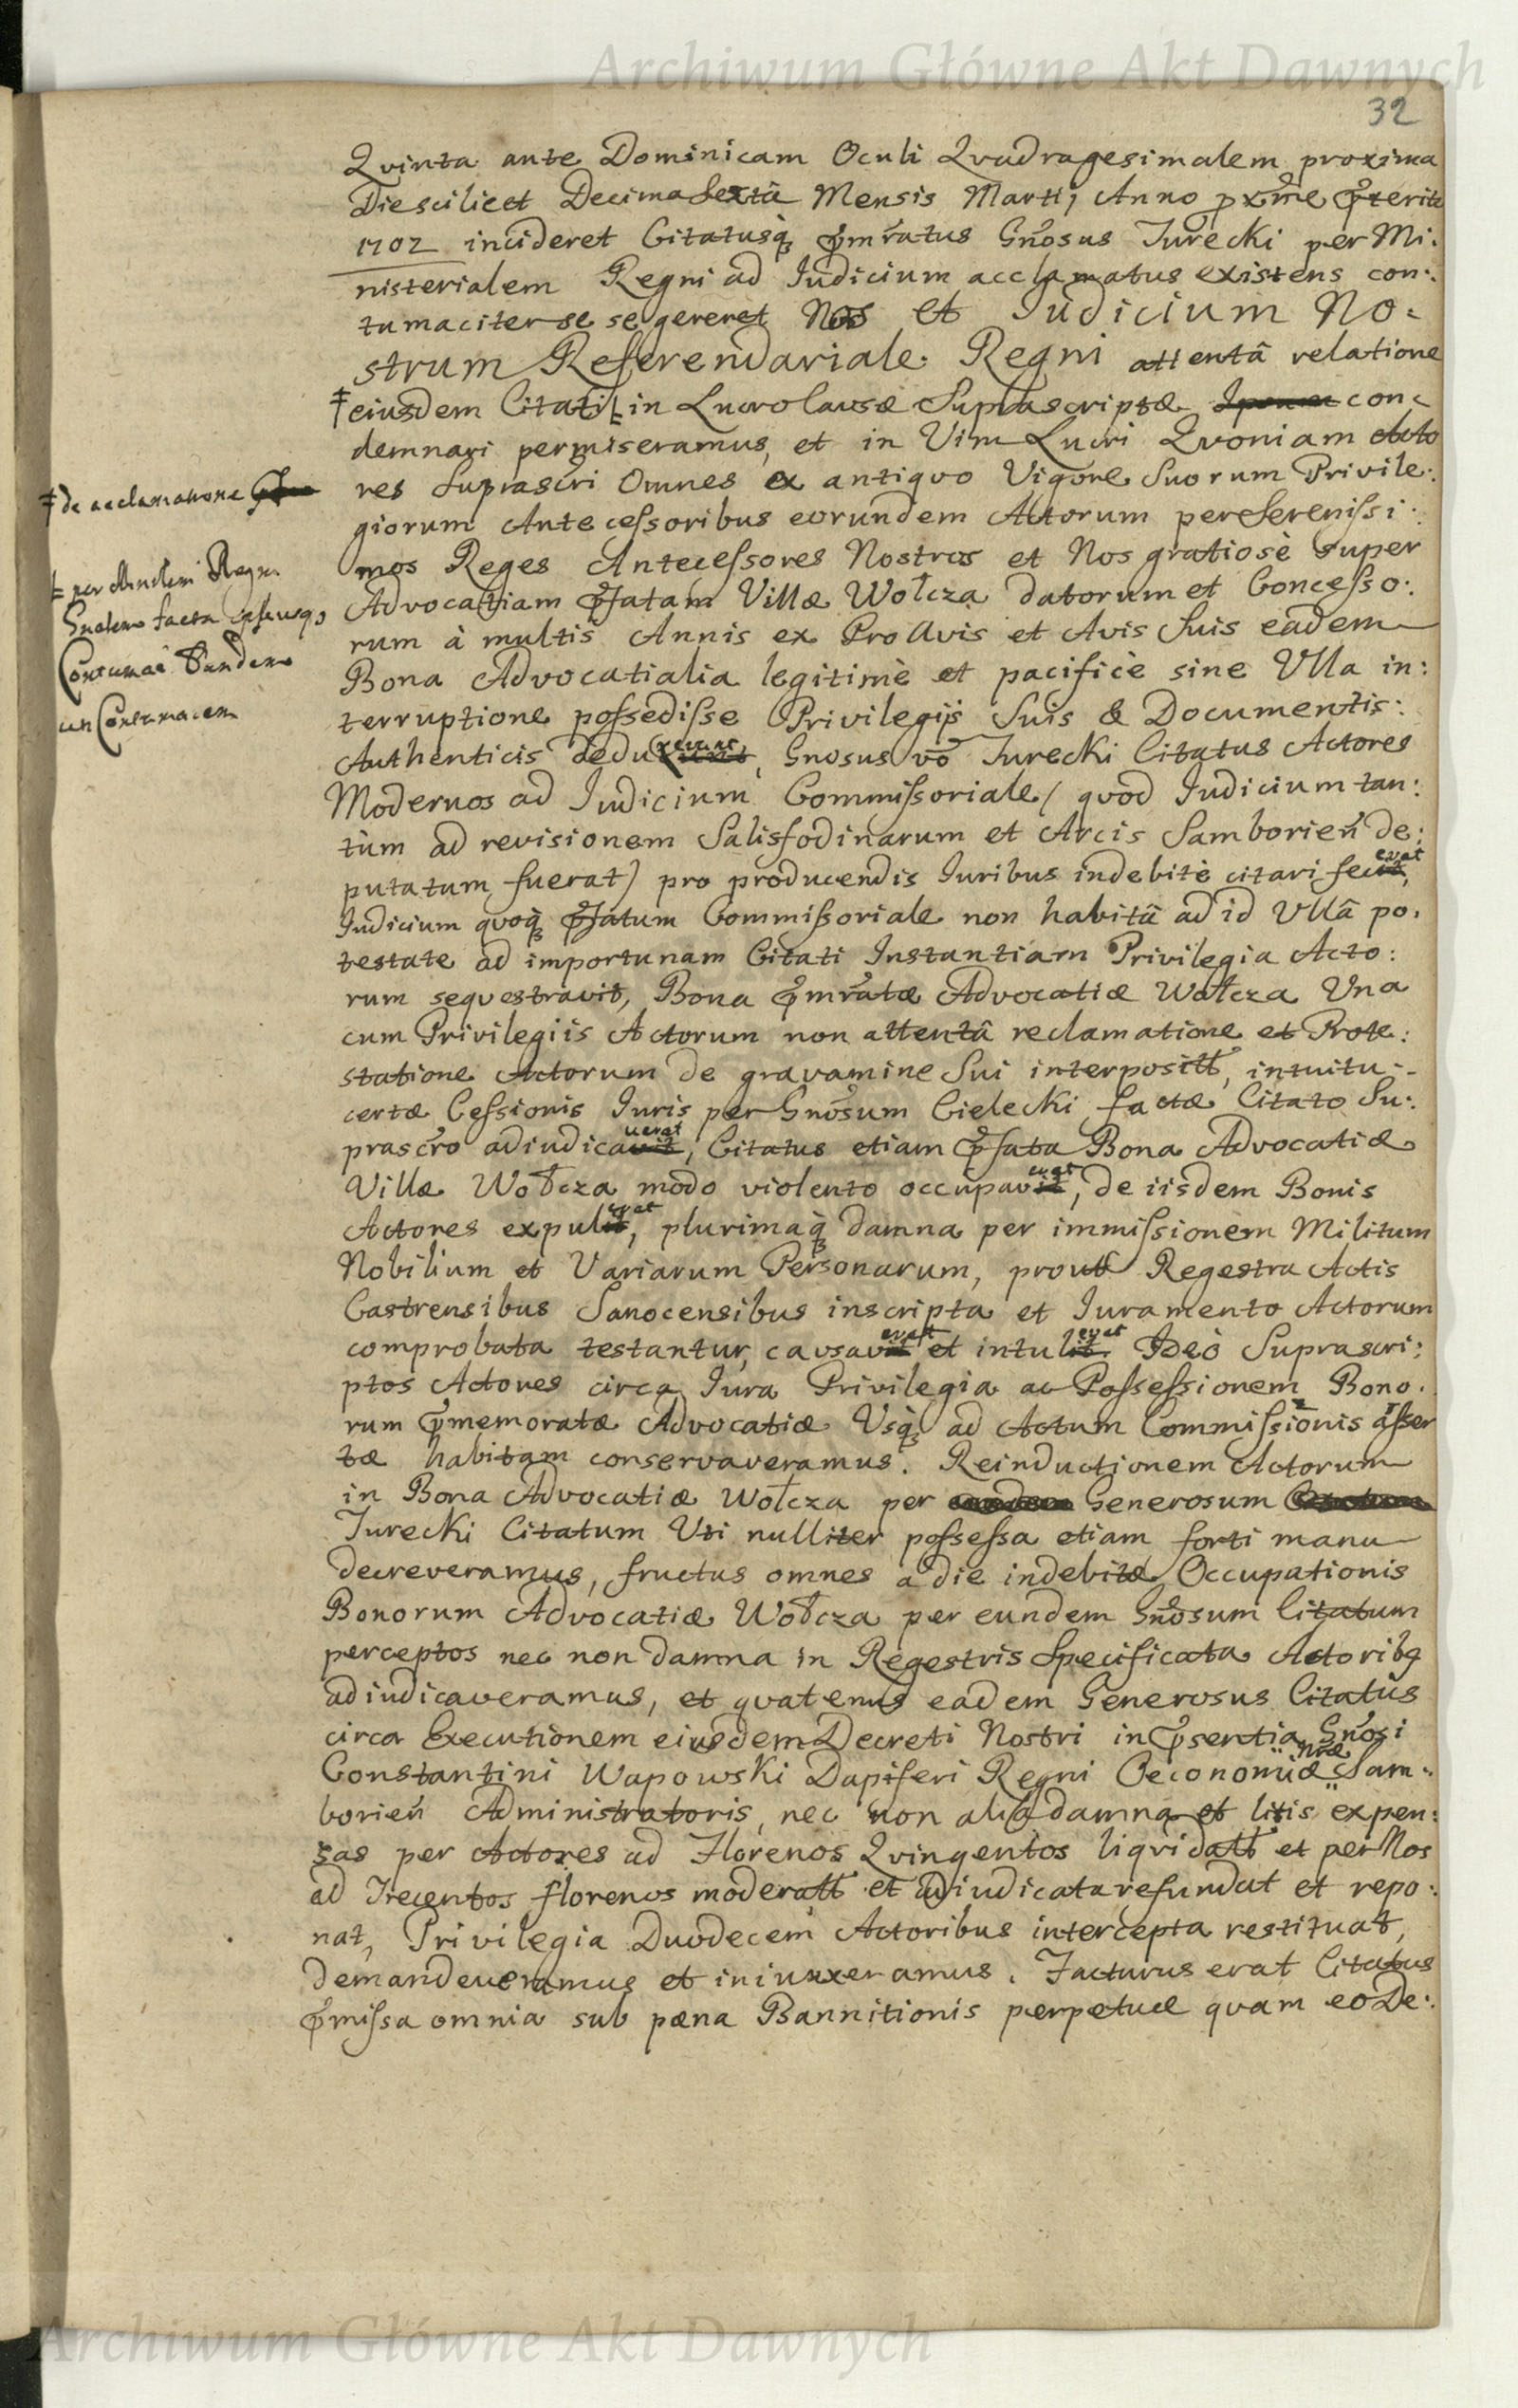 Archiwum Główne Akt Dawnych
32
Qvinta ante Dominicam Oculi Qvadragesimalem proxima
Die scilicet Decima Sextâ Mensis Martij Anno pxme prterito
1702 incideret Citatusq prmratus Gnosus Jurecki per Mi:
nisterialem Regni ad Judicium acclamatus existens con:
tumaciter se se gereret Nos et Judicium No:
strum Referendariale Regni attentâ relatione
eiusdem Citati in Lucro Causæ Suprascriptæ con:
demnari permiseramus, et in Vim Lucri Qvoniam Acto
res Suprascri Omnes ex antiqvo Vigore Suorum Privile:
‡ de acclamatione
giorum Antecessoribus eorundem Actorum per Serenissi:
mos Reges Antecessores Nostros et Nos gratiosè super
per Ministem Regni
Advocatiam prfatam Villæ Wołcza datorum et Concesso:
Gnalem facta
rum à multis Annis ex ProAvis et Avis Suis eadem
Bona Advocatialia legitimè et pacificè sine Ulla in:
terruptione possedisse Privilegijs Suis & Documentis:
un Contumacem
Authenticis deduxerunt, Gnosus vo Jurecki Citatus Actores
Modernos ad Judicium Commissoriale / quod Judicium tan:
tùm ad revisionem Salisfodinarum et Arcis Samborien de:
putatum fuerat) pro producendis Juribus indebitè citari fecerat,
Judicium quoq prfatum Commissoriale non habitâ ad id Ullâ po.
testate ad importunam Citati Instantiam Privilegia Acto:
rum seqvestravit, Bona prmratæ Advocatiæ Wołcza Una
cum Privilegiis Actorum non attentâ reclamatione et Prote:
statione Actorum de gravamine Sui interposit, intuitu:
certæ Cessionis Juris per Gnosum Cielecki factæ Citato Su:
prascro adiudicauerat, Citatus etiam prfata Bona Advocatiæ
Villæ Wołcza modo violento occupaverat, de iisdem Bonis
Actores expulerat, plurimaq damna per immissionem Militum
Nobilium et Variarum Personarum, prout Regestra Actis
Castrensibus Sanocensibus inscripta et Juramento Actorum
comprobata testantur, causaverat et intulerat. Ideò Suprascri:
ptos Actores circa Jura Privilegia ac Possessionem Bono.
rum prmemoratæ Advocatiæ Usq ad Actum Commissionis asser
tæ habitam conservaveramus. Reinductionem Actorum
in Bona Advocatiæ Wołcza per Generosum
Jurecki Citatum Uti nulliter possessa etiam forti manu
decreveramus, fructus omnes a die indebitæ Occupationis
Bonorum Advocatiæ Wołcza per eundem Gnosum Citatum
perceptos nec non damna in Regestris Specificata Actoribq
adiudicaveramus, et qvatenus eadem Generosus Citatus
circa Executionem eiusdem Decreti Nostri in prsentia Gnosi
Constantini Wapowski Dapiferi Regni Oeconomiæ nræ Sam:
borien Administratoris, nec non alia damna et litis expen:
sas per Actores ad Florenos Qvingentos liqvidatt et per Nos
ad Trecentos florenos moderatt et adiudicata refundat et repo:
nat, Privilegia Duodecem Actoribus intercepta restituat,
demandaveramus et iniunxeramus. Facturus erat Citatus
prmissa omnia sub pæna Bannitionis perpetuæ qvam eo De:
Archiwum Główne Akt Dawnych